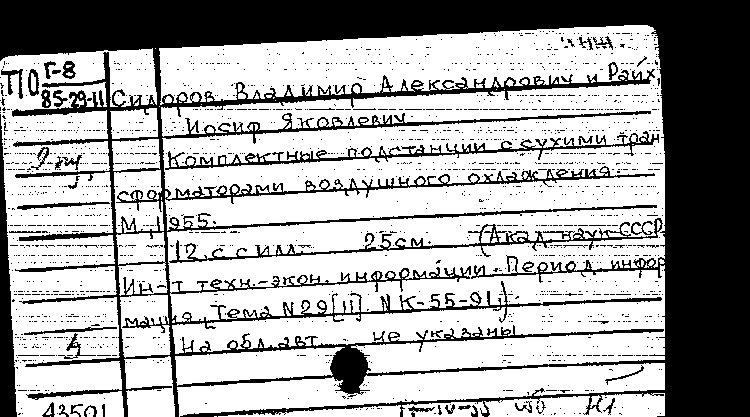 П10 Г-8
85-29-11
Сидоров, Владимир Александрович и Райх,
Иосиф Яковлевич
Комплектные подстанции с сухими тран-
сформаторами воздушного охлаждения.
М., 1955.
12 с. с илл. 25 см. (Акад. наук СССР.
Ин-т техн.-экон. информации. Период. инфор-
мация. Тема N 29[II] N К-55-91.)
На обл. авт. не указаны
43501